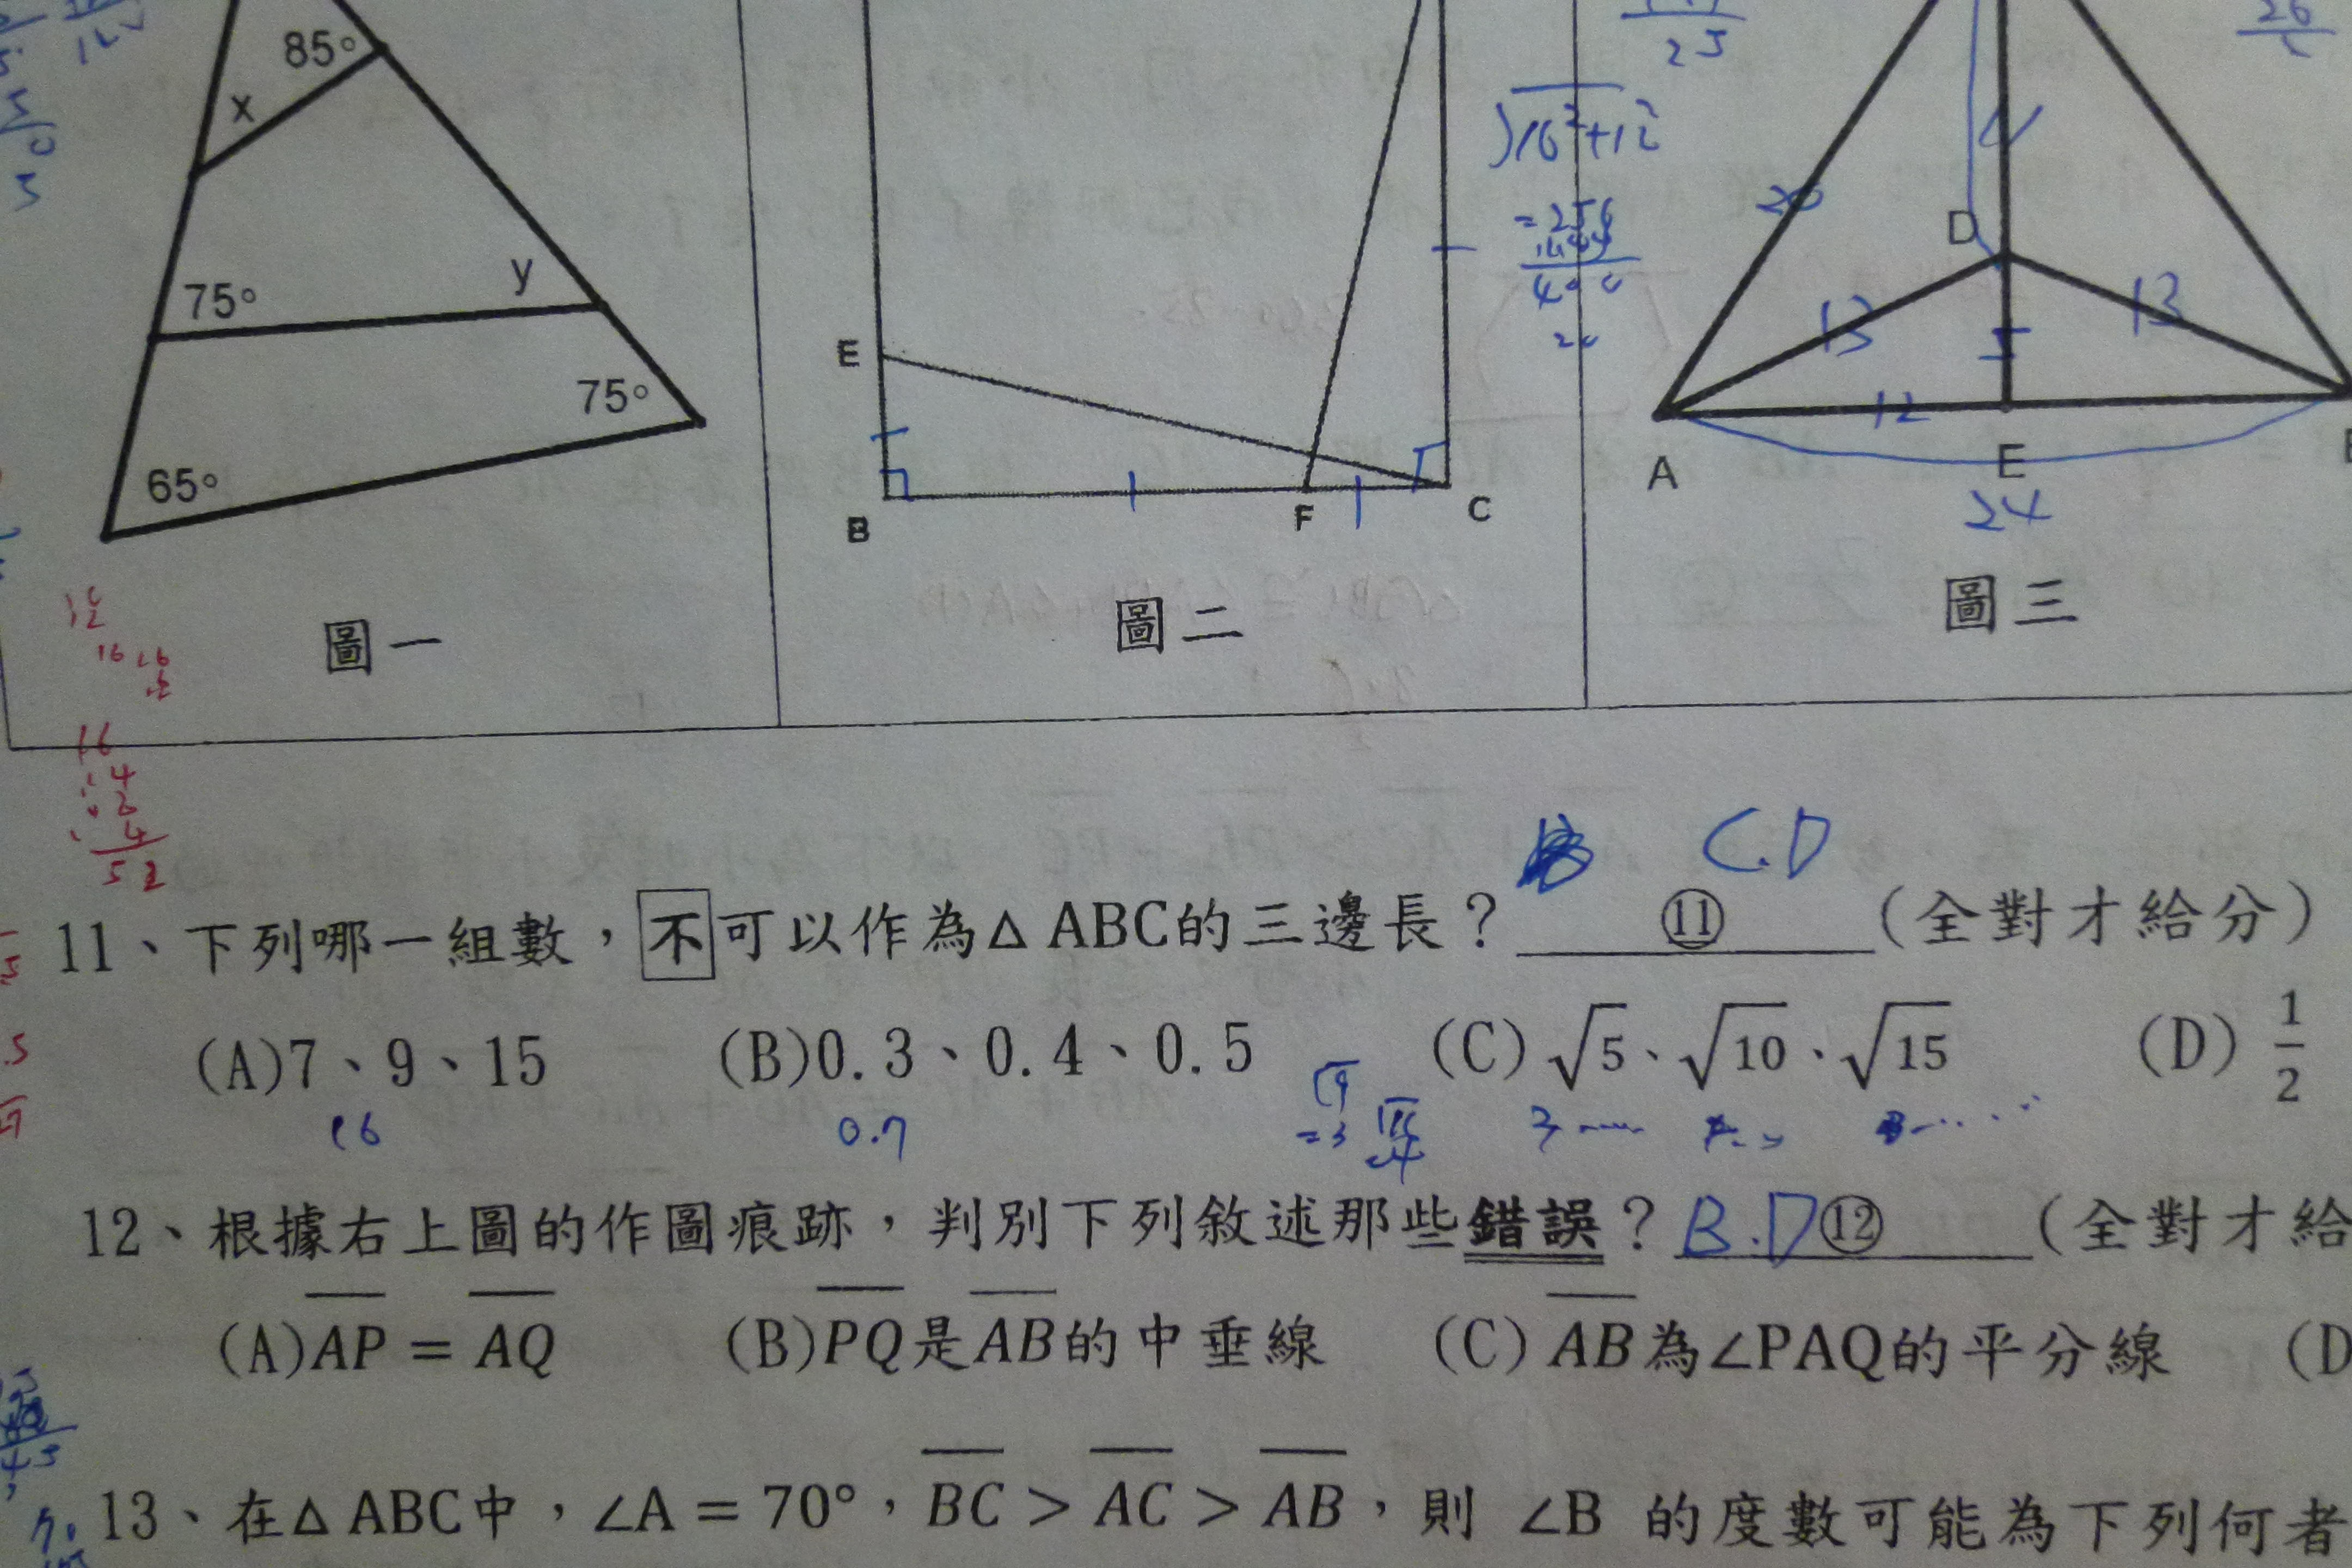 85°
x
75°
y
75°
65°
圖一
E
B
F
C
圖二
25
16²+12²
=256
20
D
13
13
5
12
A
E
24
圖三
16
52
C.D
11、下列哪一組數，不可以作為△ABC的三邊長？⑪(全對才給分)
(A)7、9、15 (B)0.3、0.4、0.5 (C)√5、√10、√15 (D)1/2
16 0.7 √9 =3
12、根據右上圖的作圖痕跡，判別下列敘述那些錯誤？B.D⑫(全對才給
(A)AP = AQ (B)PQ是AB的中垂線 (C)AB為∠PAQ的平分線 (D
13、在△ABC中，∠A = 70°，BC > AC > AB，則 ∠B 的度數可能為下列何者